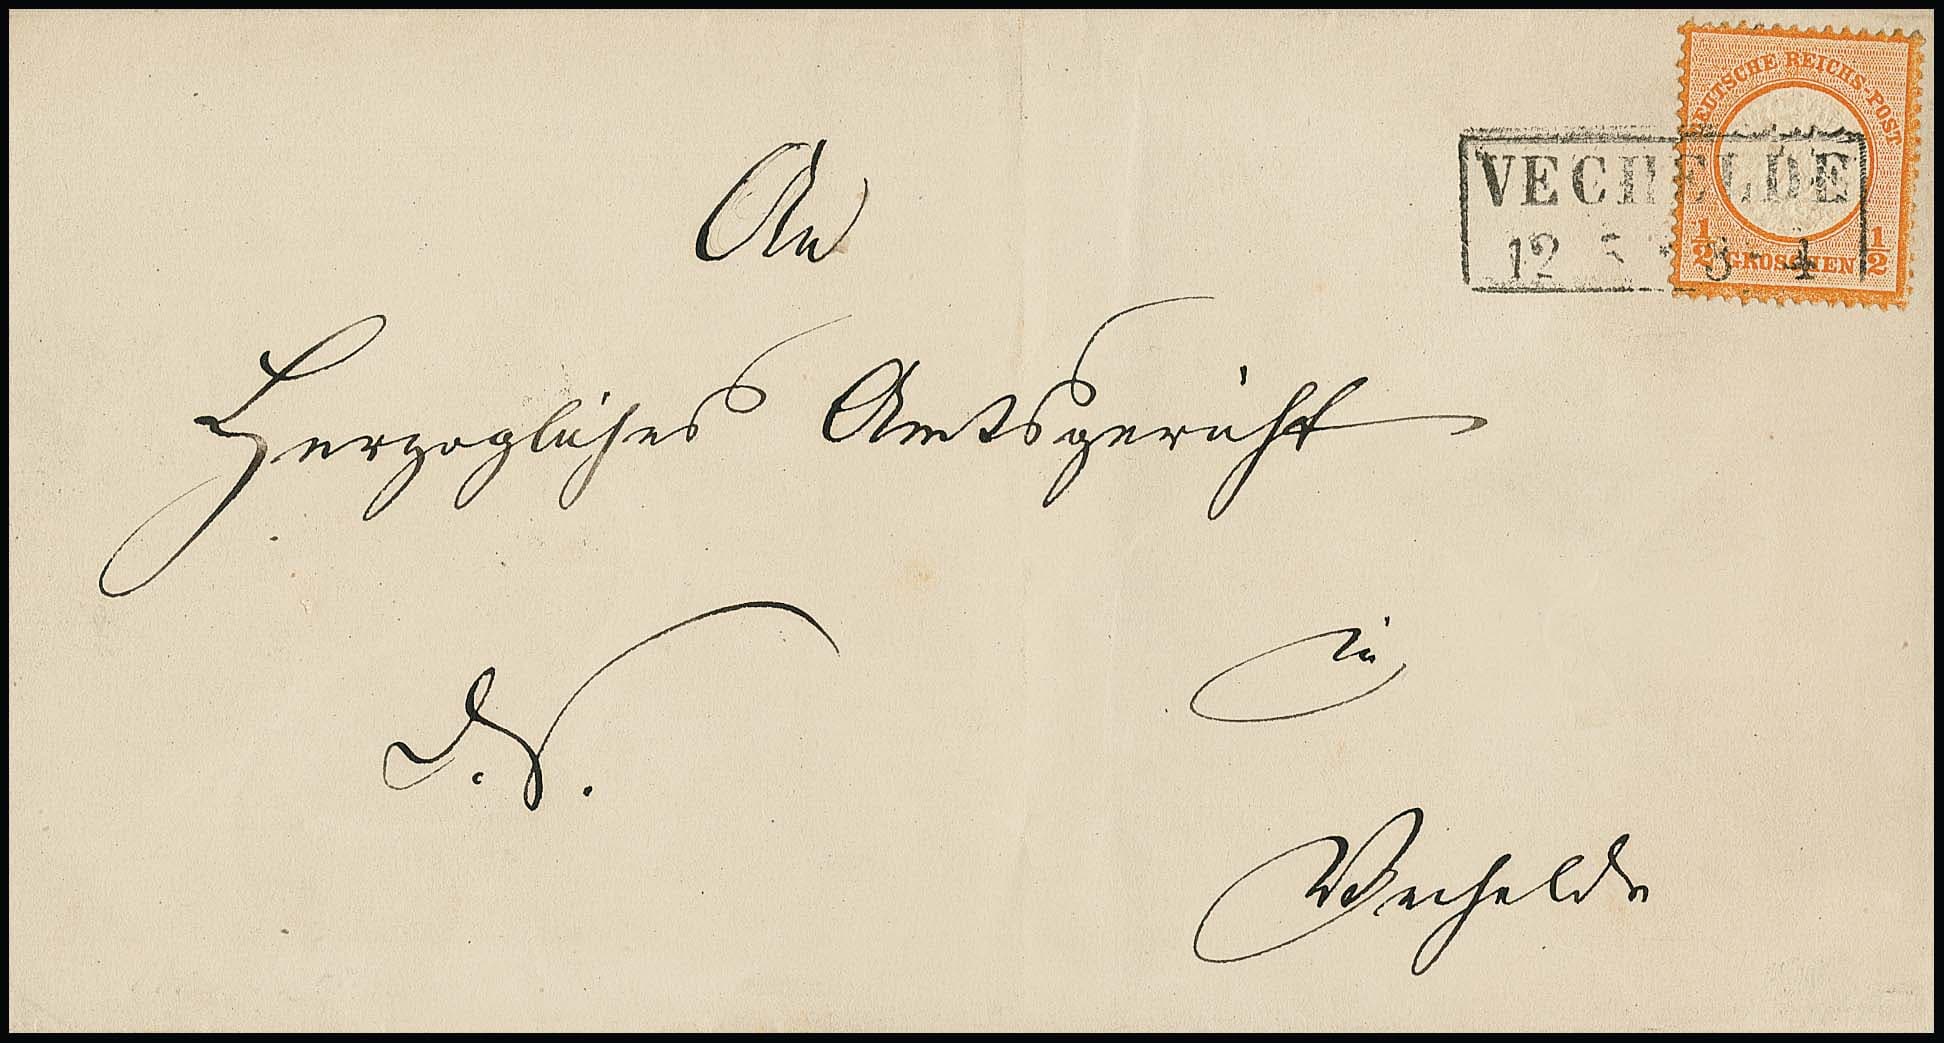 DEUTSCHE REICHS-POST
1/2 GROSCHEN 1/2
VECHELDE
12 5 * 3-4
An
Herzogliches Amtsgericht
d. S.
in
Vechelde